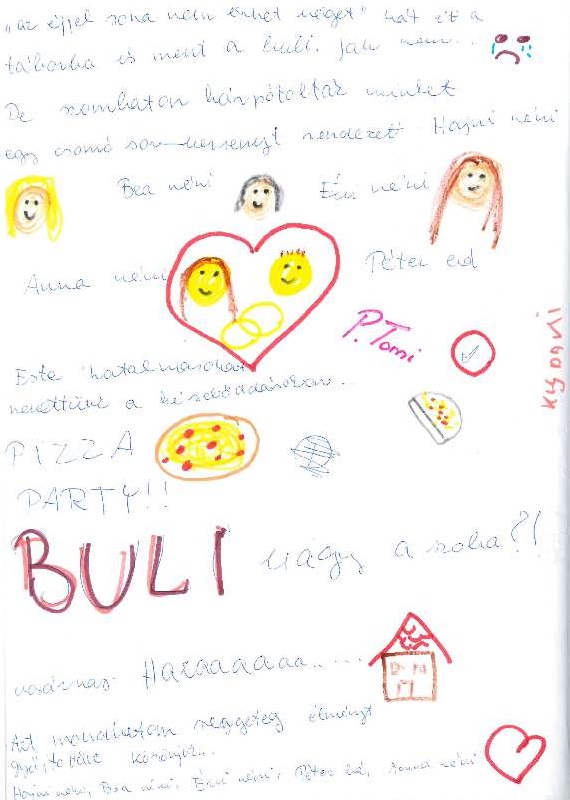 „az éjjel soha nem érhet véget" hát ez a
táborba is ment a buli. Jah nem...
De szombaton kárpótoltak minket
egy csomó sor-versenyt rendezett Hajni néni
Bea néni Évi néni
Anna néni Péter
P. Tomi
Este hatalmasokat
nevettünk a
PIZZA
PARTY!!
BULI vagy a szoba?!
vasárnap Hazaaaaaa......
Azt mondhatom rengeteg élményt
Köszönjük...
Hajni néni, Bea néni, Évi néni, Péter bá, Anna néni